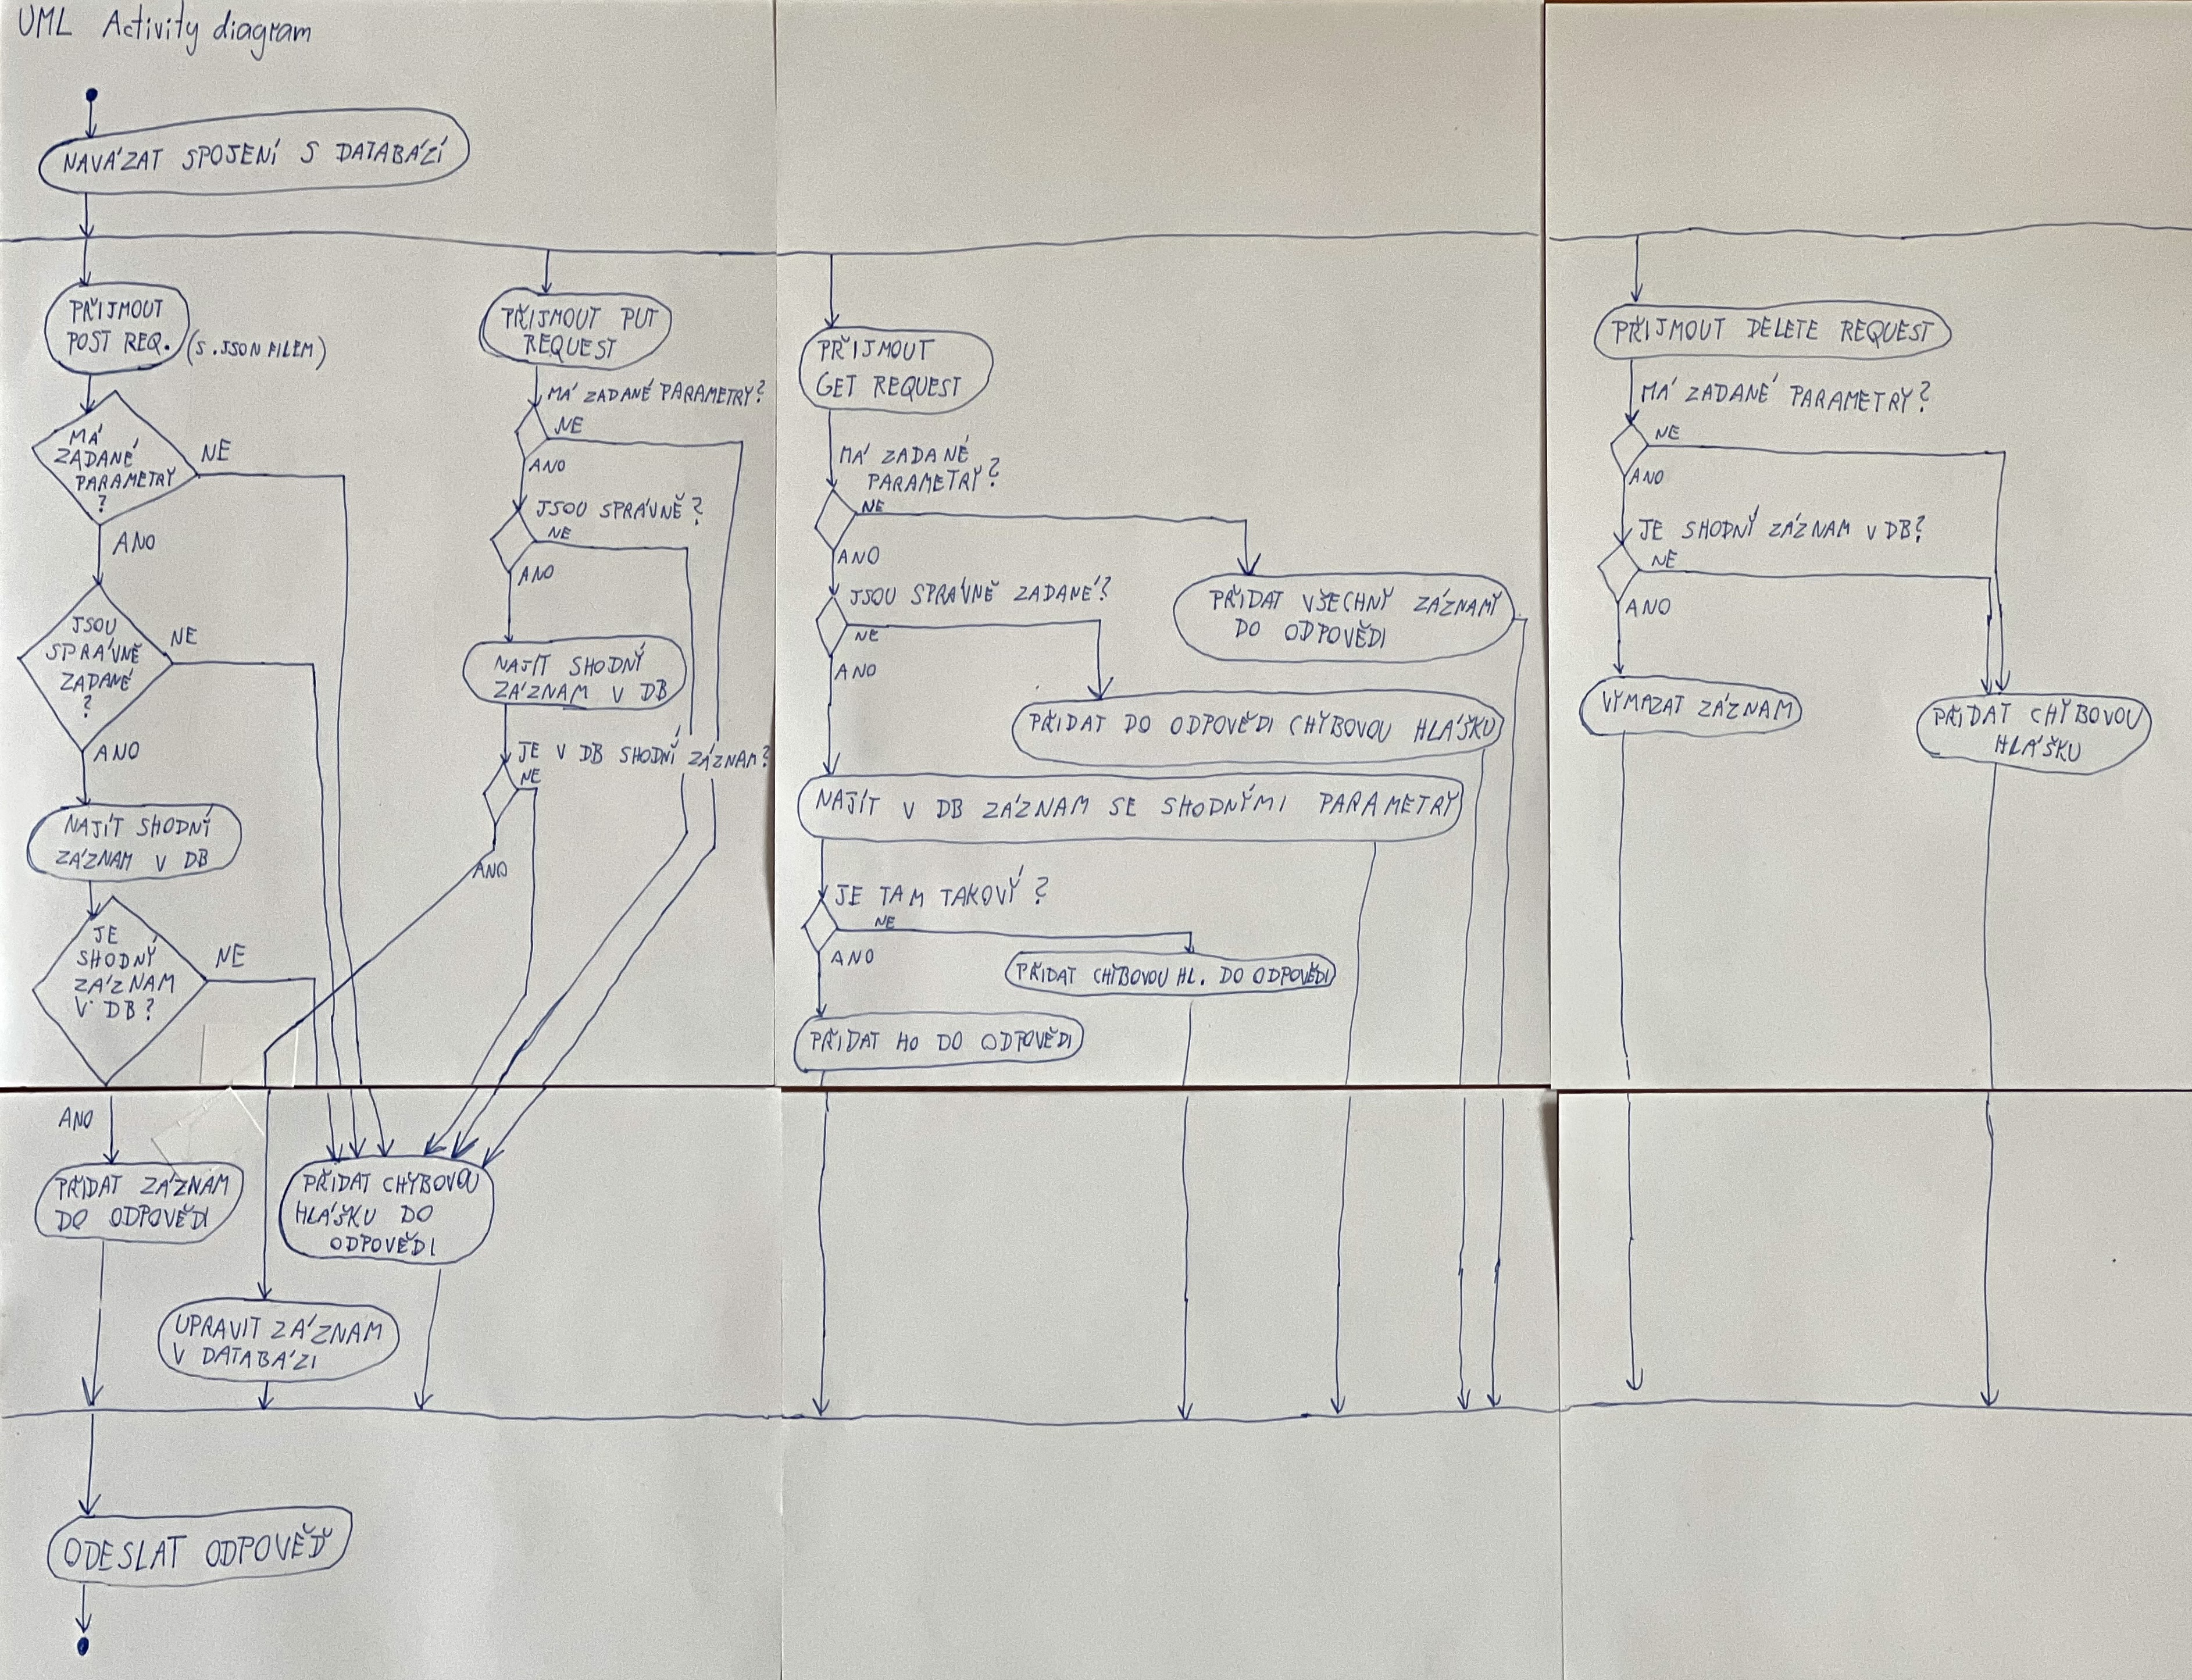 UML Activity diagram
NAVÁZAT SPOJENÍ S DATABÁZÍ
PŘIJMOUT
POST REQ. (S .JSON FILEM)
MÁ
ZADANÉ
PARAMETRY
?
NE
ANO
JSOU
SPRÁVNĚ
ZADANÉ
?
NE
ANO
NAJÍT SHODNÝ
ZÁZNAM V DB
JE
SHODNÝ
ZÁZNAM
V DB?
NE
ANO
PŘIDAT ZÁZNAM
DO ODPOVĚDI
PŘIJMOUT PUT
REQUEST
MÁ ZADANÉ PARAMETRY?
NE
ANO
JSOU SPRÁVNĚ?
NE
ANO
NAJÍT SHODNÝ
ZÁZNAM V DB
JE V DB SHODNÝ ZÁZNAM?
NE
ANO
PŘIDAT CHYBOVOU
HLÁŠKU DO
ODPOVĚDI
UPRAVIT ZÁZNAM
V DATABÁZI
PŘIJMOUT
GET REQUEST
MÁ ZADANÉ
PARAMETRY?
NE
ANO
PŘIDAT VŠECHNY ZÁZNAMY
DO ODPOVĚDI
JSOU SPRÁVNĚ ZADANÉ?
NE
ANO
PŘIDAT DO ODPOVĚDI CHYBOVOU HLÁŠKU
NAJÍT V DB ZÁZNAM SE SHODNÝMI PARAMETRY
JE TAM TAKOVÝ?
NE
ANO
PŘIDAT CHYBOVOU HL. DO ODPOVĚDI
PŘIDAT HO DO ODPOVĚDI
PŘIJMOUT DELETE REQUEST
MÁ ZADANÉ PARAMETRY?
NE
ANO
JE SHODNÝ ZÁZNAM V DB?
NE
ANO
VYMAZAT ZÁZNAM
PŘIDAT CHYBOVOU
HLÁŠKU
ODESLAT ODPOVĚĎ